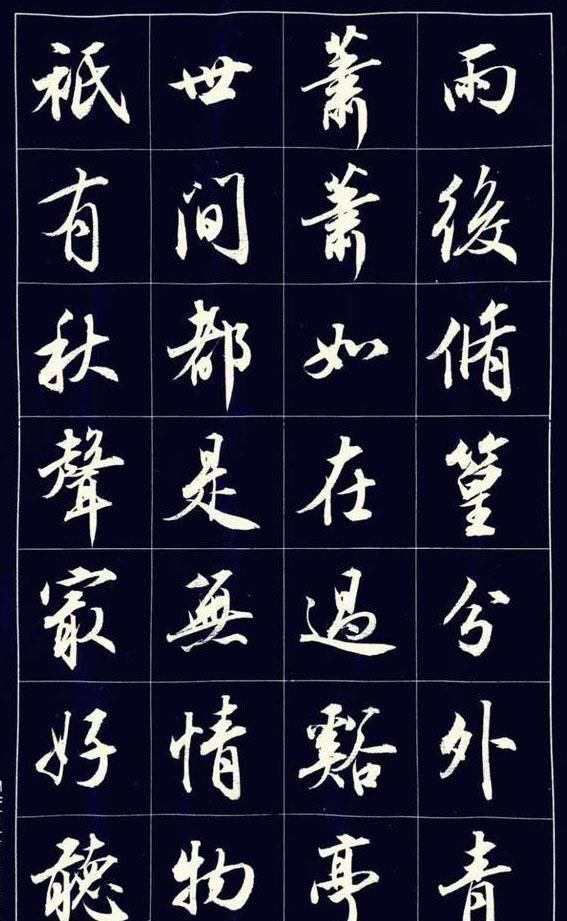 雨後脩篁分外青
蕭蕭如在過谿亭
世間都是無情物
秪有秋聲㝡好聽